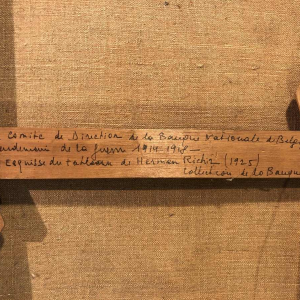 Comité de Direction de la Banque Nationale de Belg
de la guerre 1914 1918 -
Esquisse du tableau de Herman Richir (1925)
Collection de la Banqu